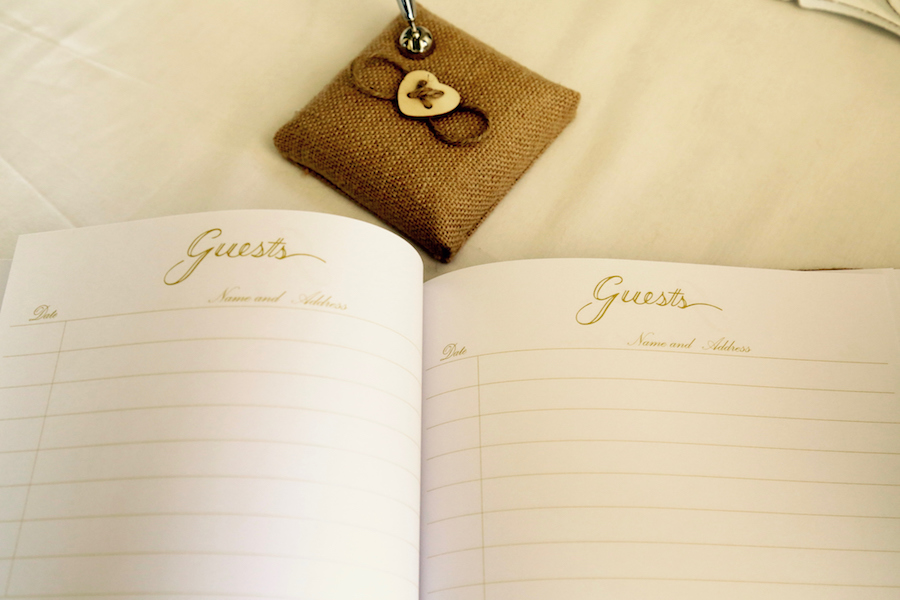 Guests
Date Name and Address
Guests
Date Name and Address